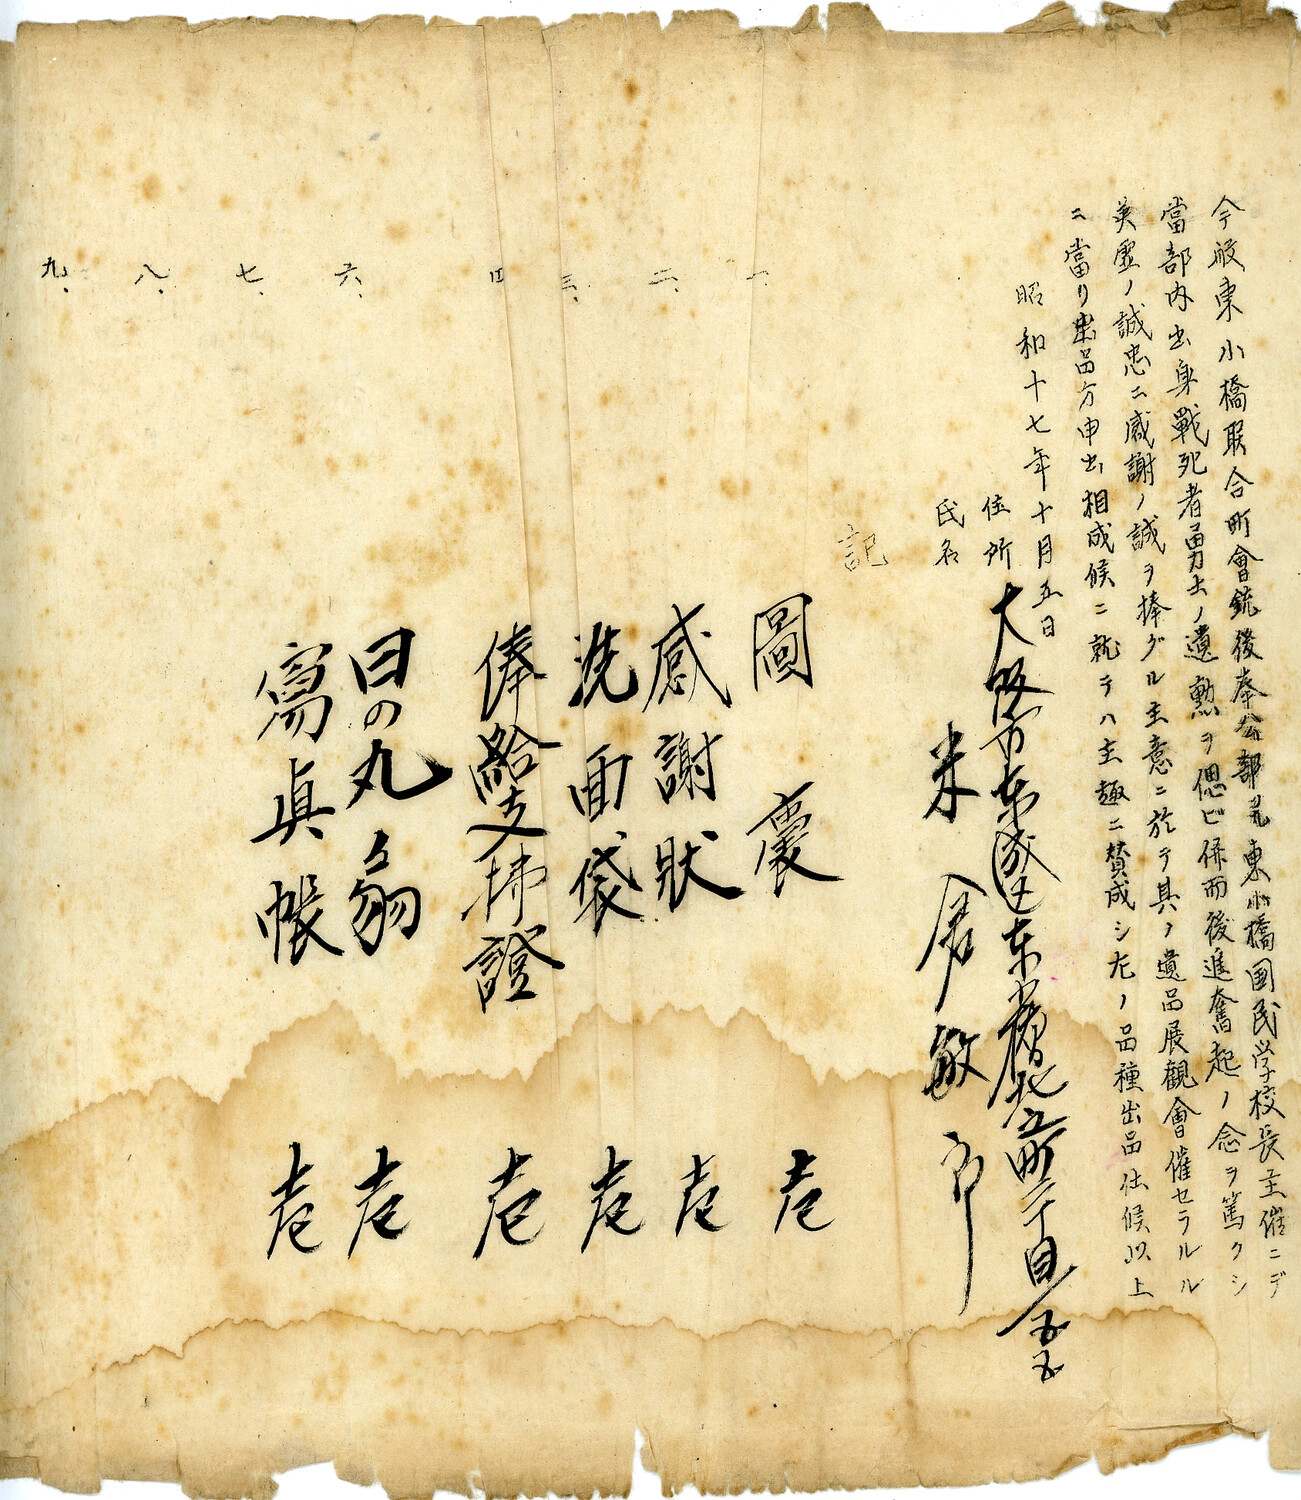 今般東小橋聯合町會銃後奉公部並東小橋國民学校長主催ニテ
當部内出身戰死者勇士ノ遺勲ヲ偲ビ併而後進奮起ノ念ヲ篤クシ
英霊ノ誠忠ニ感謝ノ誠ヲ捧グル主意ニ於テ其ノ遺品展観會催セラルル
ニ當リ出品方申出相成候ニ就テハ主趣ニ賛成シ左ノ品種出品仕候以上
昭和十七年十月五日
住所 大阪市東成区東小橋北之町二丁目五五
氏名 米倉敏郎
記
一、圖嚢 壱
二、感謝狀 壱
三、洗面袋 壱
四、俸給支拂證 壱
六、日の丸扇 壱
七、寫眞帳 壱
八、
九、